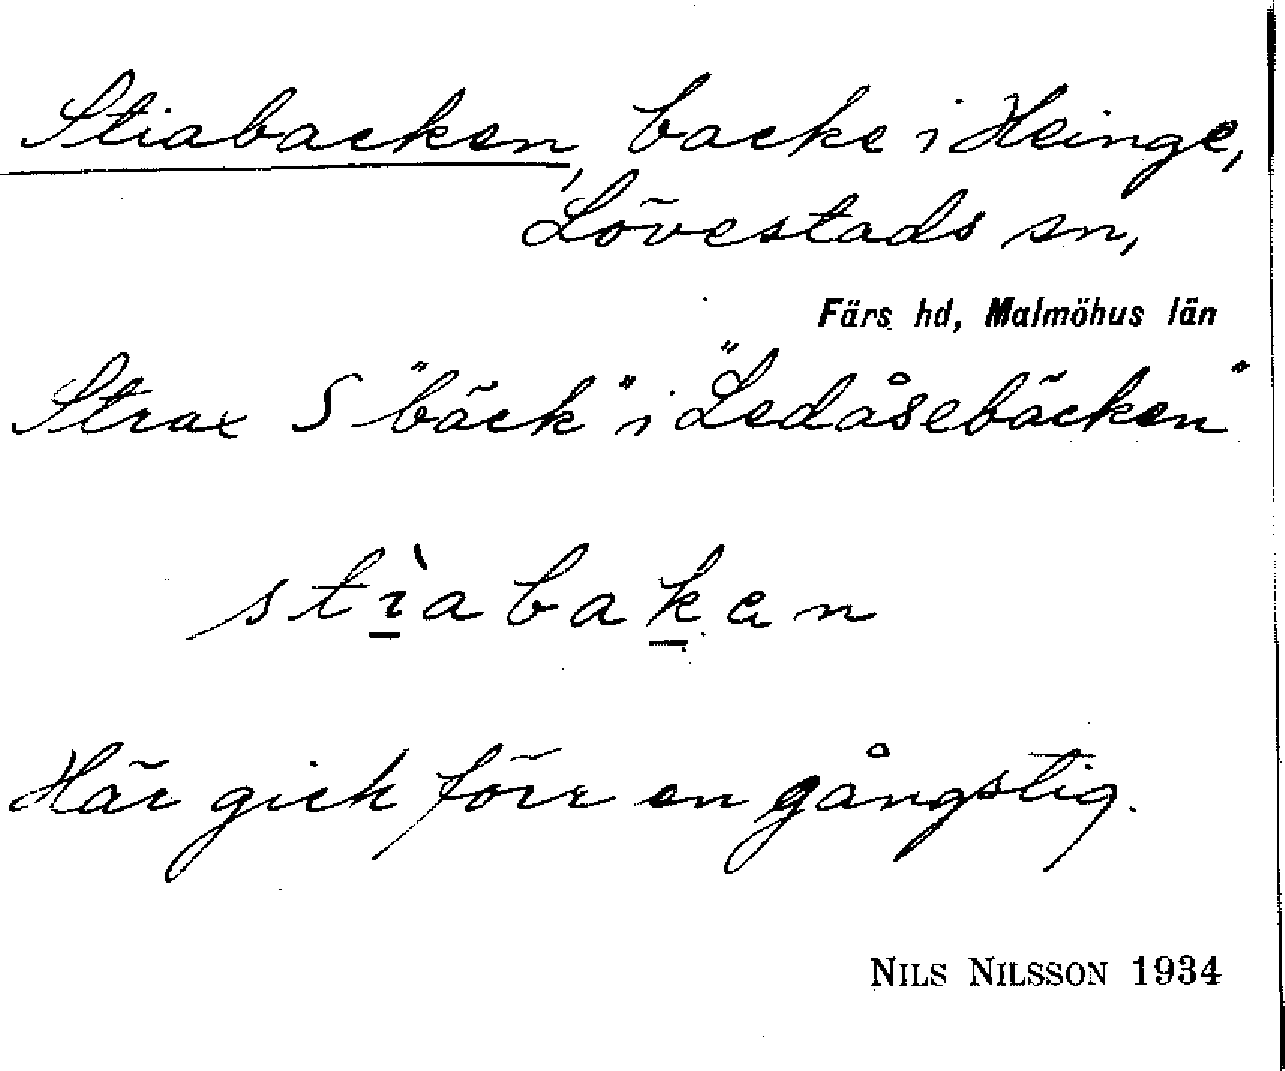 Stiabacken, backe i Heinge,
Lövestads sn,
Färs hd, Malmöhus län
Strax S "bäck" i "Ledåsebäcken"
stìabakan
Här gick förr en gångstig.
NILS NILSSON 1934